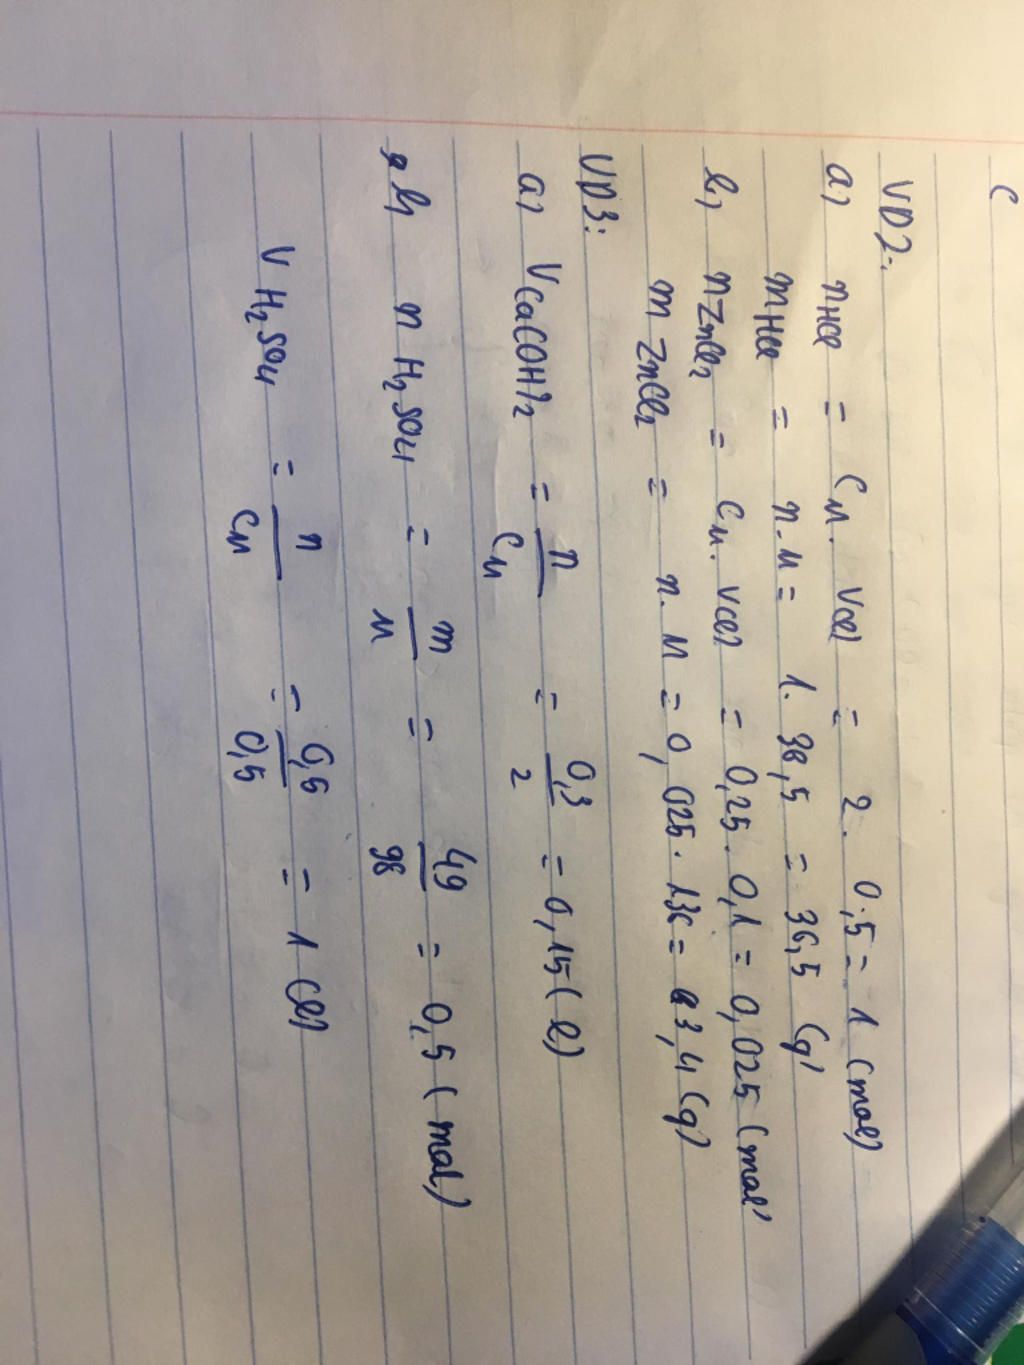 C
VD2:
a) nHCl = CM. Vdd = 2. 0,5 = 1 (mol)
mHCl = n.M = 1. 36,5 = 36,5 (g)
b, nZnCl2 = CM. Vdd = 0,25. 0,1 = 0,025 (mol)
m ZnCl2 = n. M = 0,025. 136 = 3,4 (g)
VD3:
a) VCa(OH)2 = n/CM = 0,3/2 = 0,15 (l)
b, n H2SO4 = m/M = 49/98 = 0,5 (mol)
V H2SO4 = n/CM = 0,5/0,5 = 1 (l)